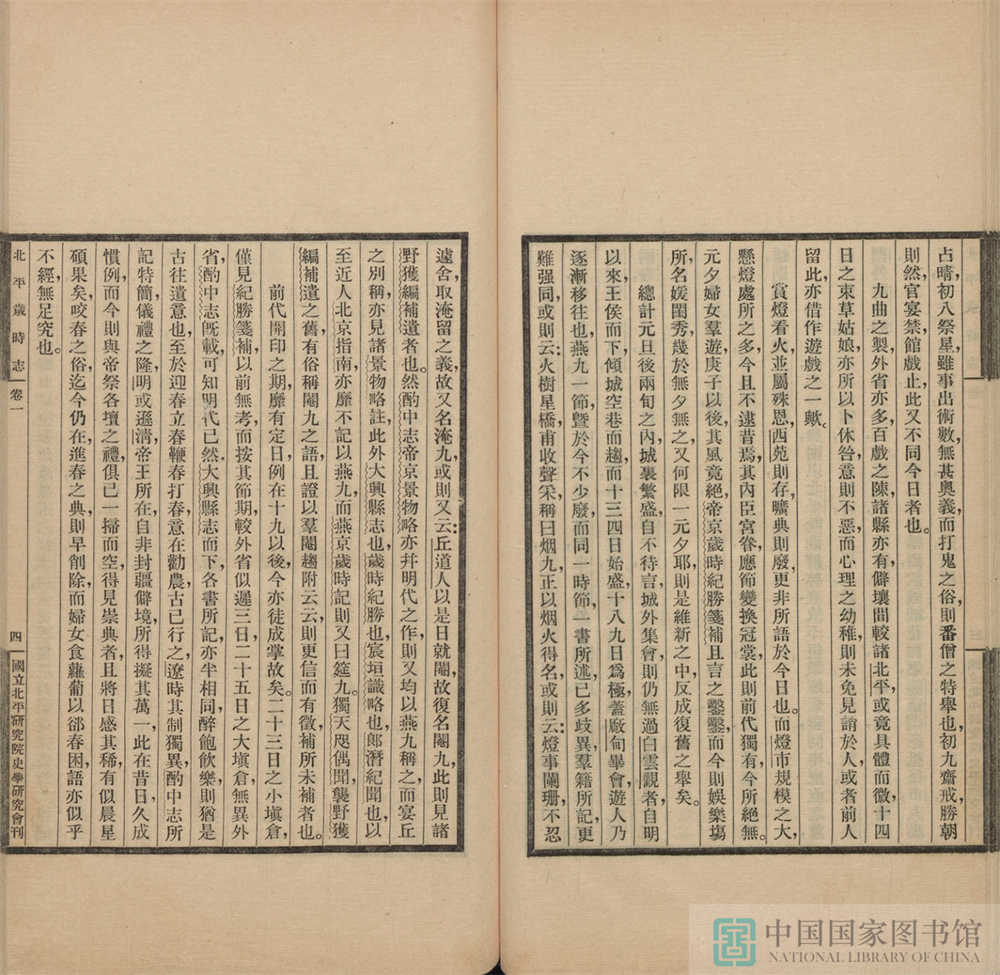 占晴初八祭星雖事出術數無甚奧義而打鬼之俗則番僧之特舉也初九齋戒勝朝
則然官宴禁館戲止此又不同今日者也。
九曲之製外省亦多百戲之陳諸縣亦有僻壤間較諸北平或竟具體而微十四
日之束草姑娘亦所以卜休咎意則不惡而心理之幼稚則未免見誚於人或者前人
留此亦借作遊戲之一歟。
賞燈看火並屬殊恩西苑則存曠典則廢更非所語於今日也。而燈市規模之大,
懸燈處所之多今且不逮昔焉其內臣宮眷應節變換冠裳此則前代獨有今所絕無。
元夕婦女羣遊庚子以後其風竟絕帝京歲時紀勝箋補且言之鑿鑿而今則娛樂塲
所名媛閨秀幾於無夕無之又何限一元夕耶則是維新之中反成復舊之舉矣。
總計元旦後兩旬之內城裏繁盛自不待言城外集會則仍無過白雲觀者自明
以來王侯而下傾城空巷而趨而十三四日始盛十八九日爲極蓋廠甸畢會遊人乃
逐漸移往也燕九一節曁於今不少廢而同一時節一書所述已多歧異羣籍所記更
難强同或則云火樹星橋甫收聲采稱曰烟九正以烟火得名或則云燈事闌珊不忍
遽舍取淹留之義故又名淹九或則又云丘道人以是日就閹故復名閹九此則見諸
野獲編補遺者也。然酌中志帝京景物略亦幷明代之作則又均以燕九稱之而宴丘
之別稱亦見諸景物略註此外大興縣志也歲時紀勝也宸垣識略也郞潛紀聞也以
至近人北京指南亦靡不記以燕九而燕京歲時記則又曰筵九。獨天咫偶聞襲野獲
編補遺之舊有俗稱閹九之語且證以羣閹趨附云云則更信而有徵補所未補者也。
前代開印之期靡有定日例在十九以後今亦徒成掌故矣。二十三日之小塡倉,
僅見紀勝箋補以前無考而按其節期較外省似遲三日二十五日之大塡倉無異外
省酌中志旣載可知明代已然大興縣志而下各書所記亦半相同醉飽飲樂則猶是
古往遺意也至於迎春立春鞭春打春意在勸農古已行之遼時其制獨異酌中志所
記特簡儀禮之隆明或遜淸帝王所在自非封疆僻境所得擬其萬一此在昔日久成
慣例而今則與帝祭各壇之禮俱已一掃而空得見崇典者且將日感其稀有似晨星
碩果矣咬春之俗迄今仍在進春之典則早削除而婦女食蘿蔔以郤春困語亦似乎
不經無足究也。
北平歲時志 卷一 四 國立北平硏究院史學硏究會刊
中国国家图书馆
NATIONAL LIBRARY OF CHINA